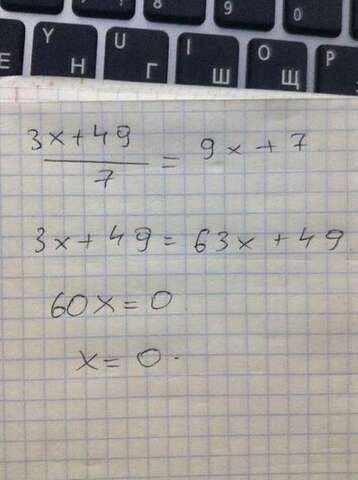 8 9 0
Y U I O P
Е Н Г Ш Щ
3x+49
7 = 9x+7
3x+49=63x+49
60x=0
x=0.